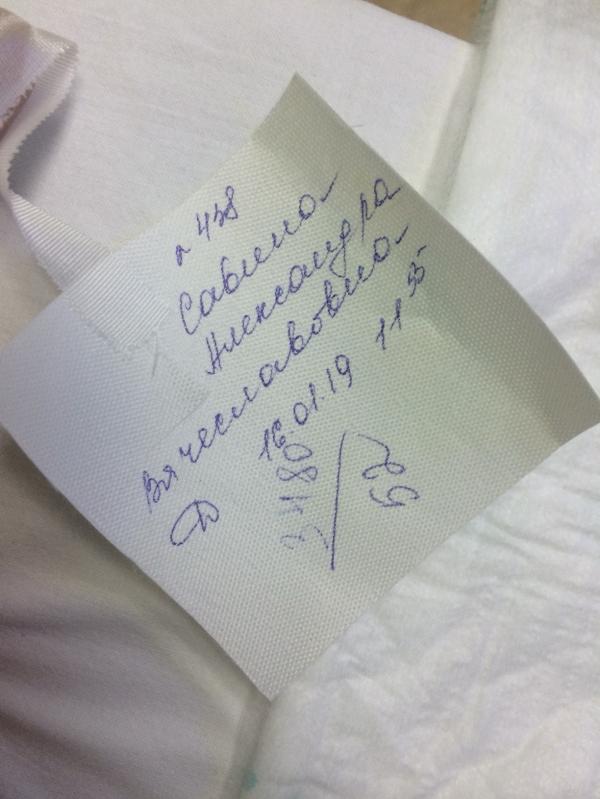 н 438
Савина
Александра
Вячеславовна
16.01.19 11 55
Д 3480/52